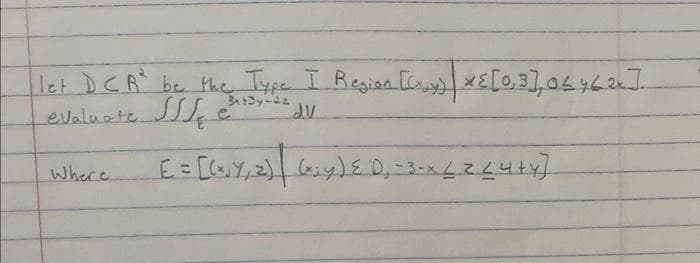 let D ⊂ R² be the Type I Region [(x,y) | x ε [0,3], 0 ≤ y ≤ 2x].
evaluate ∫∫∫_E e^(3x+3y-2z) dV
Where E = [(x,y,z) | (x,y) ε D, -3-x ≤ z ≤ 4+y]